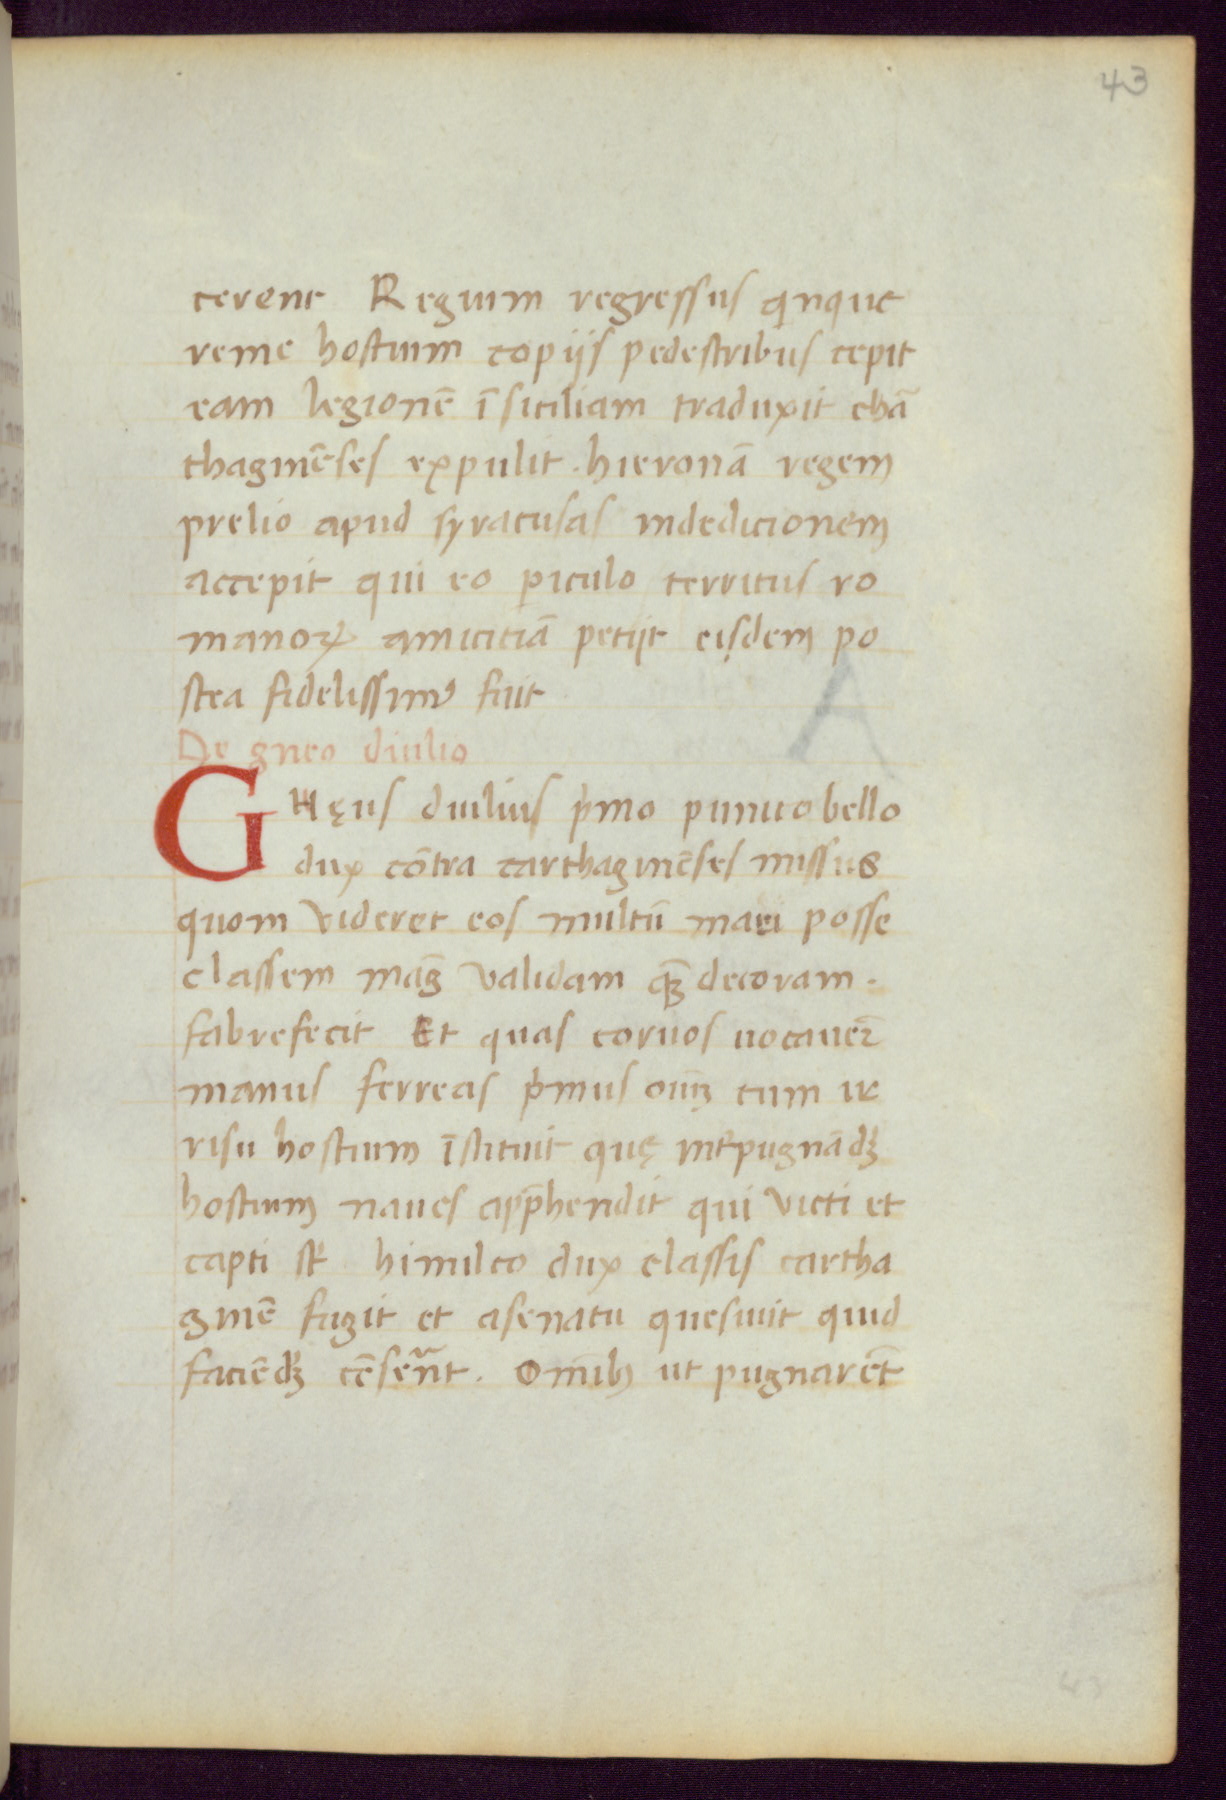 43
cerent Regium regressus qnque
reme hostium copijs pedestribus cepit
eam legionē ī siciliam traduxit chā
thaginēses expulit . hieronā regem
prelio apud syracusas indedicionem
accepit qui eo piculo territus ro
manoꝝ amicitiā petijt eisdem po
stea fidelissimꝰ fuit
De gneo diulio
Gneęus duilius pͥmo punico bello
dux cōtra carthaginēses missus
quom videret eos multū mari posse
classem māg validam qꝫ decoram .
fabrefecit Et quas coruos uocauer̄
manus ferreas pͥmus oīuꝫ cum ir
risu hostium īstituit quę int̓pugnādꝫ
hostium naues app̄hendit qui victi et
capti st̄ himilco dux classis cartha
ginē fugit et asenatu quesiuit quid
faciēdꝫ cēserēnt . Omībꝫ ut pugnarēt